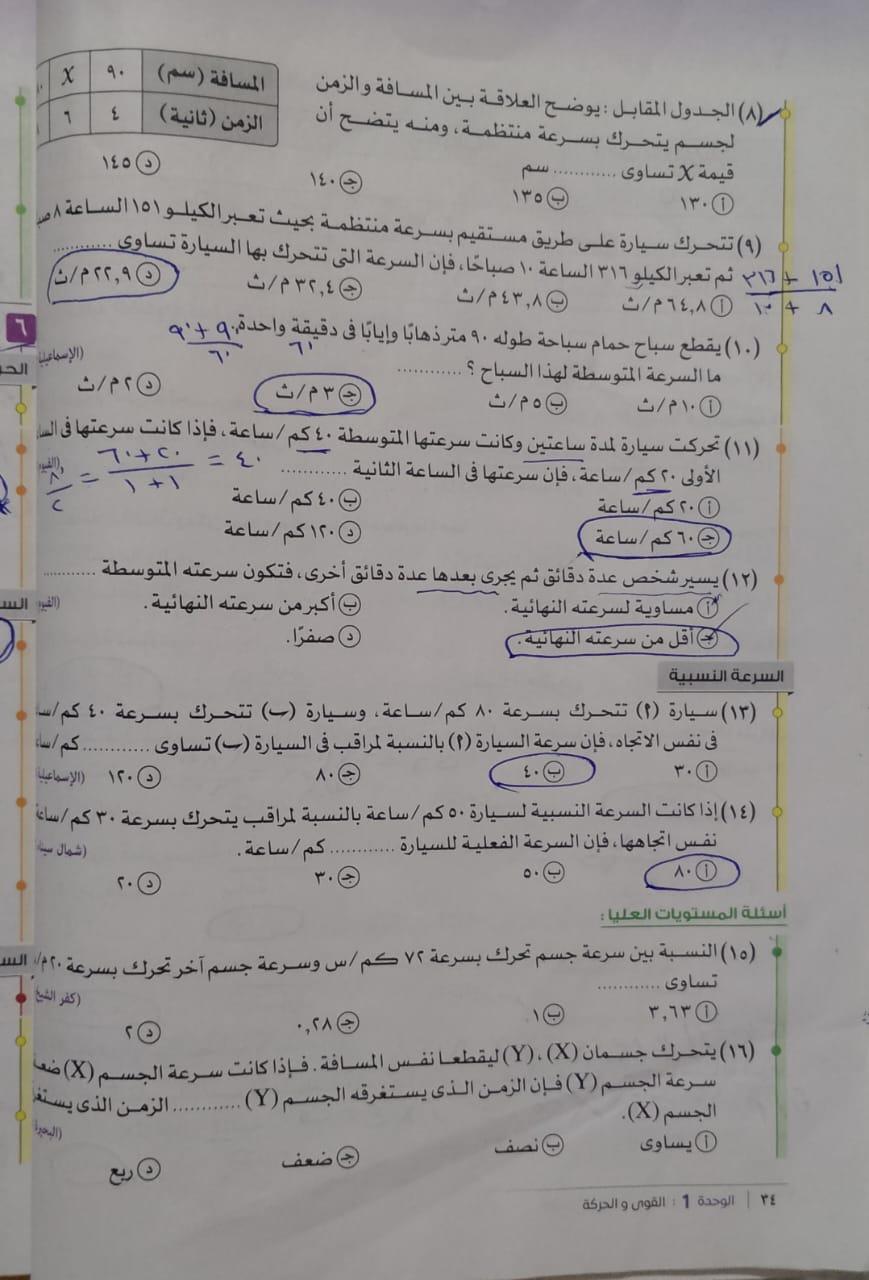 (٨) الجدول المقابل : يوضح العلاقة بين المسافة والزمن
لجسم يتحرك بسرعة منتظمة، ومنه يتضح أن
قيمة X تساوى ............ سم
المسافة (سم) ٩٠ X
الزمن (ثانية) ٤ ٦
أ ١٣٠ ب ١٣٥ ج ١٤٠ د ١٤٥
(٩) تتحرك سيارة على طريق مستقيم بسرعة منتظمة بحيث تعبر الكيلو ١٥١ الساعة ٨ ص
ثم تعبر الكيلو ٣١٦ الساعة ١٠ صباحًا، فإن السرعة التى تتحرك بها السيارة تساوى ............
١٥١ + ٣١٦
٨ + ١٠
أ ٦٤,٨ م/ث ب ٤٣,٨ م/ث ج ٣٢,٤ م/ث د ٢٢,٩ م/ث
(١٠) يقطع سباح حمام سباحة طوله ٩٠ متر ذهابًا وإيابًا فى دقيقة واحدة،
٩٠ + ٩٠
٦٠
٦٠
ما السرعة المتوسطة لهذا السباح ؟ ............
أ ١٠ م/ث ب ٥ م/ث ج ٣ م/ث د ٢ م/ث
(١١) تحركت سيارة لمدة ساعتين وكانت سرعتها المتوسطة ٤٠ كم/ساعة، فإذا كانت سرعتها فى
الأولى ٢٠ كم/ساعة، فإن سرعتها فى الساعة الثانية ............
٤٠ = ٢٠ + ٦٠ =
١ + ١
أ ٢٠ كم/ساعة ب ٤٠ كم/ساعة
ج ٦٠ كم/ساعة د ١٢٠ كم/ساعة
(١٢) يسير شخص عدة دقائق ثم يجرى بعدها عدة دقائق أخرى، فتكون سرعته المتوسطة ............
أ مساوية لسرعته النهائية. ب أكبر من سرعته النهائية.
ج أقل من سرعته النهائية. د صفرًا.
السرعة النسبية
(١٣) سيارة (٢) تتحرك بسرعة ٨٠ كم/ساعة، وسيارة (ب) تتحرك بسرعة ٤٠ كم/
فى نفس الاتجاه، فإن سرعة السيارة (٢) بالنسبة لمراقب فى السيارة (ب) تساوى ............ كم/
أ ٣٠ ب ٤٠ ج ٨٠ د ١٢٠
(١٤) إذا كانت السرعة النسبية لسيارة ٥٠ كم/ساعة بالنسبة لمراقب يتحرك بسرعة ٣٠ كم/ساعة
نفس اتجاهها، فإن السرعة الفعلية للسيارة ............ كم/ساعة.
أ ٨٠ ب ٥٠ ج ٣٠ د ٢٠
أسئلة المستويات العليا :
(١٥) النسبة بين سرعة جسم تحرك بسرعة ٧٢ كم/س وسرعة جسم آخر تحرك بسرعة ٢٠ م/
تساوى ............
(كفر الشيخ
أ ٣,٦٣ ب ١ ج ٠,٢٨ د ٢
(١٦) يتحرك جسمان (X) ، (Y) ليقطعا نفس المسافة. فإذا كانت سرعة الجسم (X)
سرعة الجسم (Y) فإن الزمن الذى يستغرقه الجسم (Y) ............ الزمن الذى
الجسم (X).
أ يساوى ب نصف ج ضعف د ربع
٣٤ | الوحدة 1 : القوى و الحركة
٦